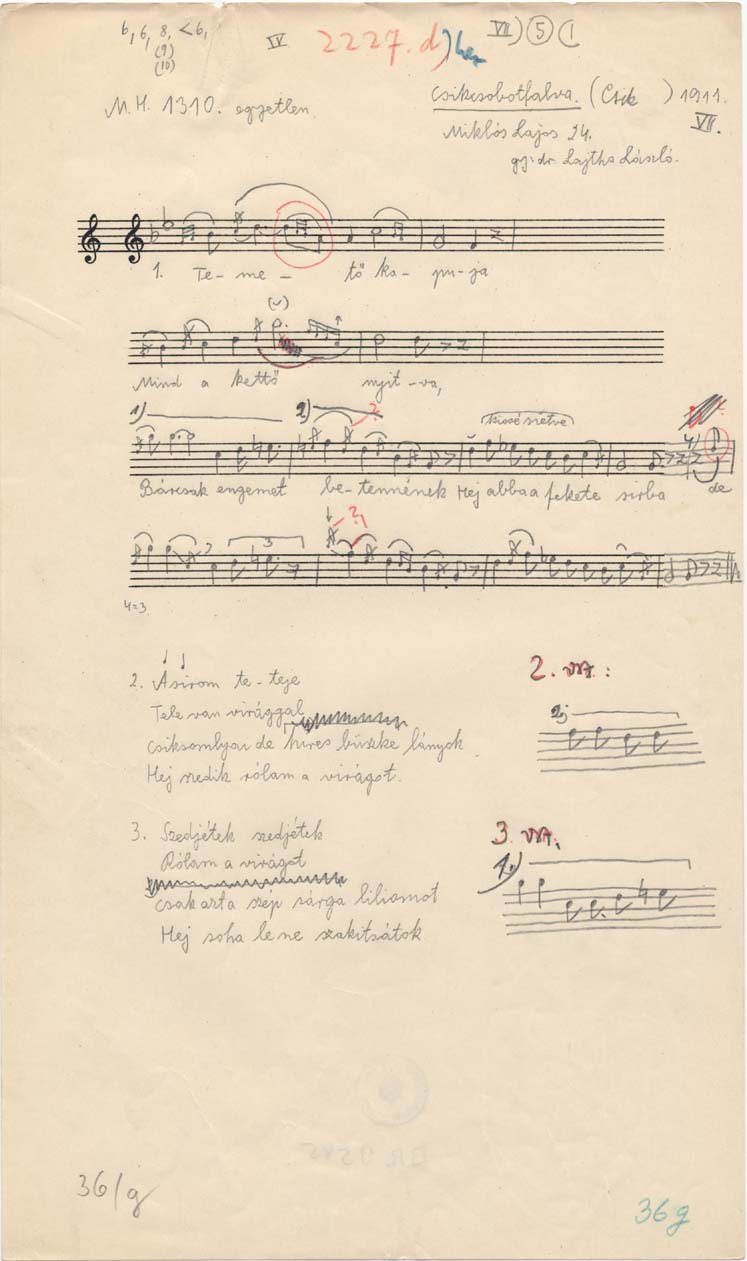 6, 6, 8, <6,
(9)
(10)
IV
2227. d)
VII) 5 (1
M.H. 1310. egyetlen.
Csikcsobotfalva. (Csik ) 1911.
VII.
Miklós Lajos 24.
gy: dr. Lajtha László.
1. Te- me - tő ka- pu- ja
(⌣)
Mind a kettő nyit-va,
1) 2) ? kissé sietve 4)
Bárcsak engemet be-tennének Hej abba a fekete sirba de
3 ?
4=3
2. A sirom te-teje
Tele van virággal
Csiksomlyai de hires büszke lányok
Hej szedik rólam a virágot.
2. vsz.:
2)
3. Szedjétek szedjétek
Rólam a virágot
Csak arra szép sárga liliomot
Hej soha le ne szakitsátok
3. vsz.
1)
36/g
36g